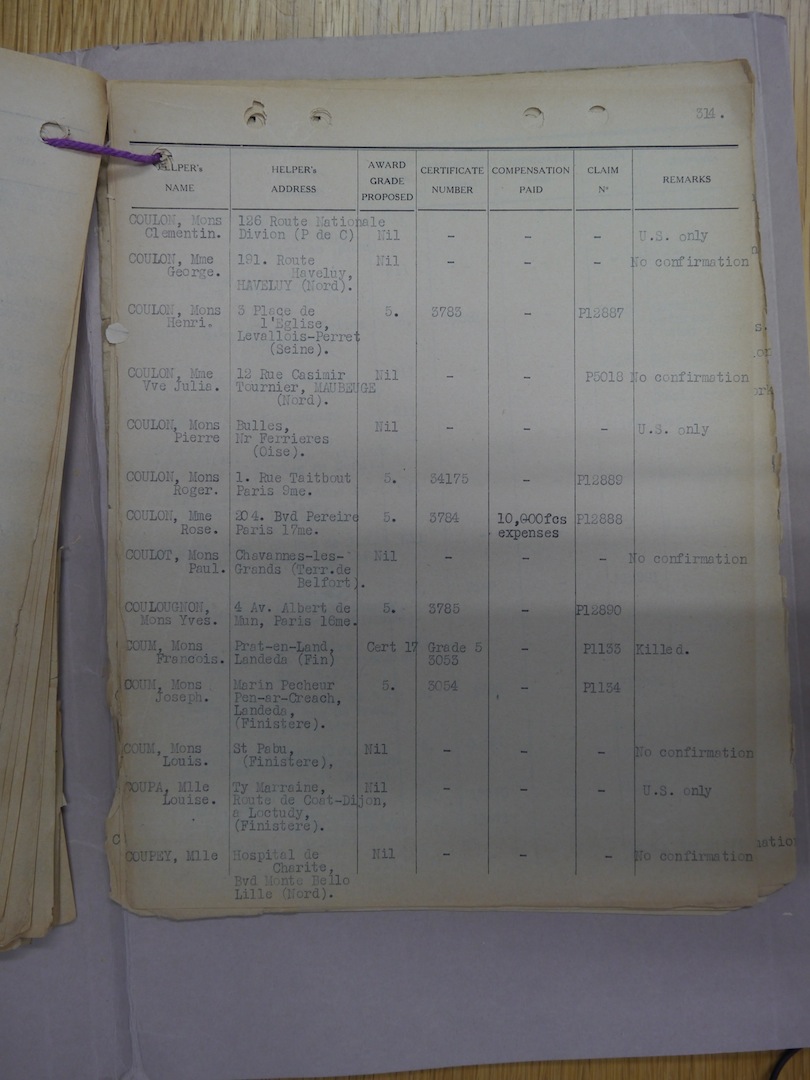 314.
HELPER's NAME | HELPER's ADDRESS | AWARD GRADE PROPOSED | CERTIFICATE NUMBER | COMPENSATION PAID | CLAIM N° | REMARKS
COULON, Mons 126 Route Nationale
Clementin. Divion (P de C) Nil - - - U.S. only
COULON, Mme 191. Route Nil - - - No confirmation
George. Haveluy,
HAVELUY (Nord).
COULON, Mons 3 Place de 5. 3783 - P12887
Henri. l'Eglise,
Levallois-Perret
(Seine).
COULON, Mme 12 Rue Casimir Nil - - P5018 No confirmation
Yve Julia. Tournier, MAUBEUGE
(Nord).
COULON, Mons Bulles, Nil - - - U.S. only
Pierre Nr Ferrieres
(Oise).
COULON, Mons 1. Rue Taitbout 5. 34175 - P12889
Roger. Paris 9me.
COULON, Mme 204. Bvd Pereire 5. 3784 10,000fcs P12888
Rose. Paris 17me. expenses
COULOT, Mons Chavannes-les- Nil - - - No confirmation
Paul. Grands (Terr.de
Belfort).
COULOUGNON, 4 Av. Albert de 5. 3785 - P12890
Mons Yves. Mun, Paris 16me.
COUM, Mons Prat-en-Land, Cert 17 Grade 5 - P1133 Killed.
Francois. Landeda (Fin) 3053
COUM, Mons Marin Pecheur 5. 3054 - P1134
Joseph. Pen-ar-Creach,
Landeda,
(Finistere).
COUM, Mons St Pabu, Nil - - - No confirmation
Louis. (Finistere),
COUPA, Mlle Ty Marraine, Nil - - - U.S. only
Louise. Route de Coat-Dijon,
a Loctudy,
(Finistere).
COUPEY, Mlle Hospital de Nil - - - No confirmation
Charite,
Bvd Monte Bello
Lille (Nord).